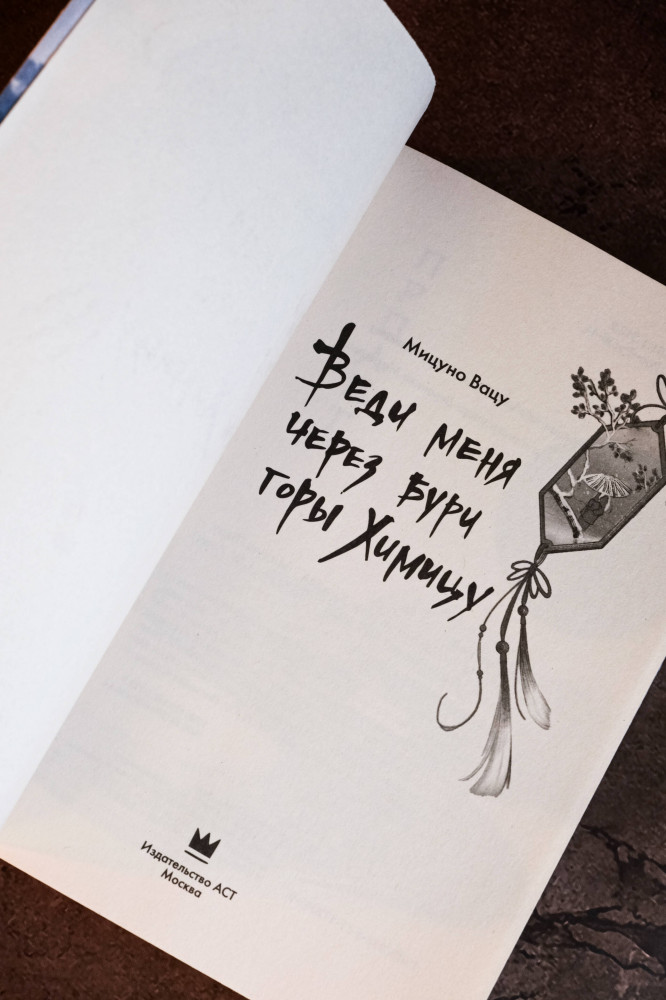 Мицуно Вацу
Веди меня
через бури
горы Химицу
Издательство АСТ
Москва